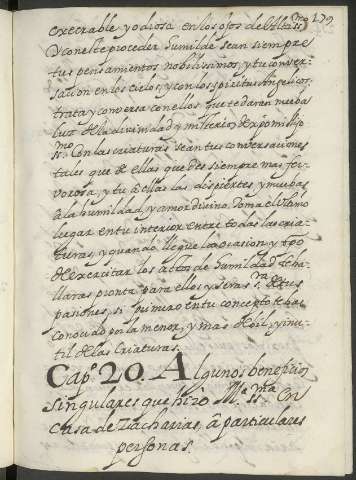 179
execrable y odiosa en los ojos del Altiss.mo
Y con este proceder humilde sean siempre
tus pensamientos nobilissimos, y tu conver-
sacion en los cielos, y con los spiritus Angelicos
trata y conversa con ellos que te daran nueba
luz de la divinidad y misterios de xpo mi hijo
SS.mo Con las criaturas sean tus conversaciones
tales que de ellas quedes siempre mas fer-
vorosa, y tu á ellas las despiertes, y muevas
á la humildad, y amor divino. Toma el ultimo
lugar en tu interior entre todas las cria-
turas, y quando llegue la ocasion y tpo
de exercitar los actos de humildad te ha-
llaras pronta para ellos y seras s.ra de tus
pasiones, si primero en tu concepto te has
conocido por la menor, y mas debil, y inu-
til de las criaturas.
Cap.o 20. Algunos beneficios
singulares que hizo M.a SS.ma en
casa de Zacharias, â particulares
personas.